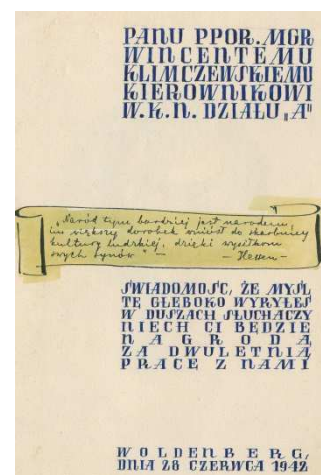 PANU PPOR. MGR
WINCENTEMU
KLIMCZEWSKIEMU
KIEROWNIKOWI
W. K. N. DZIAŁU „A"
„Naród tym bardziej jest narodem
im większy dorobek wniósł do skarbnicy
kultury ludzkiej, dzięki wysiłkom
swych synów" —
— Hessen —
ŚWIADOMOŚĆ, ŻE MYŚL
TĘ GŁĘBOKO WYRYŁEŚ
W DUSZACH SŁUCHACZY
NIECH CI BĘDZIE
NAGRODĄ
ZA DWULETNIĄ
PRACĘ Z NAMI
WOLDENBERG,
DNIA 28 CZERWCA 1942